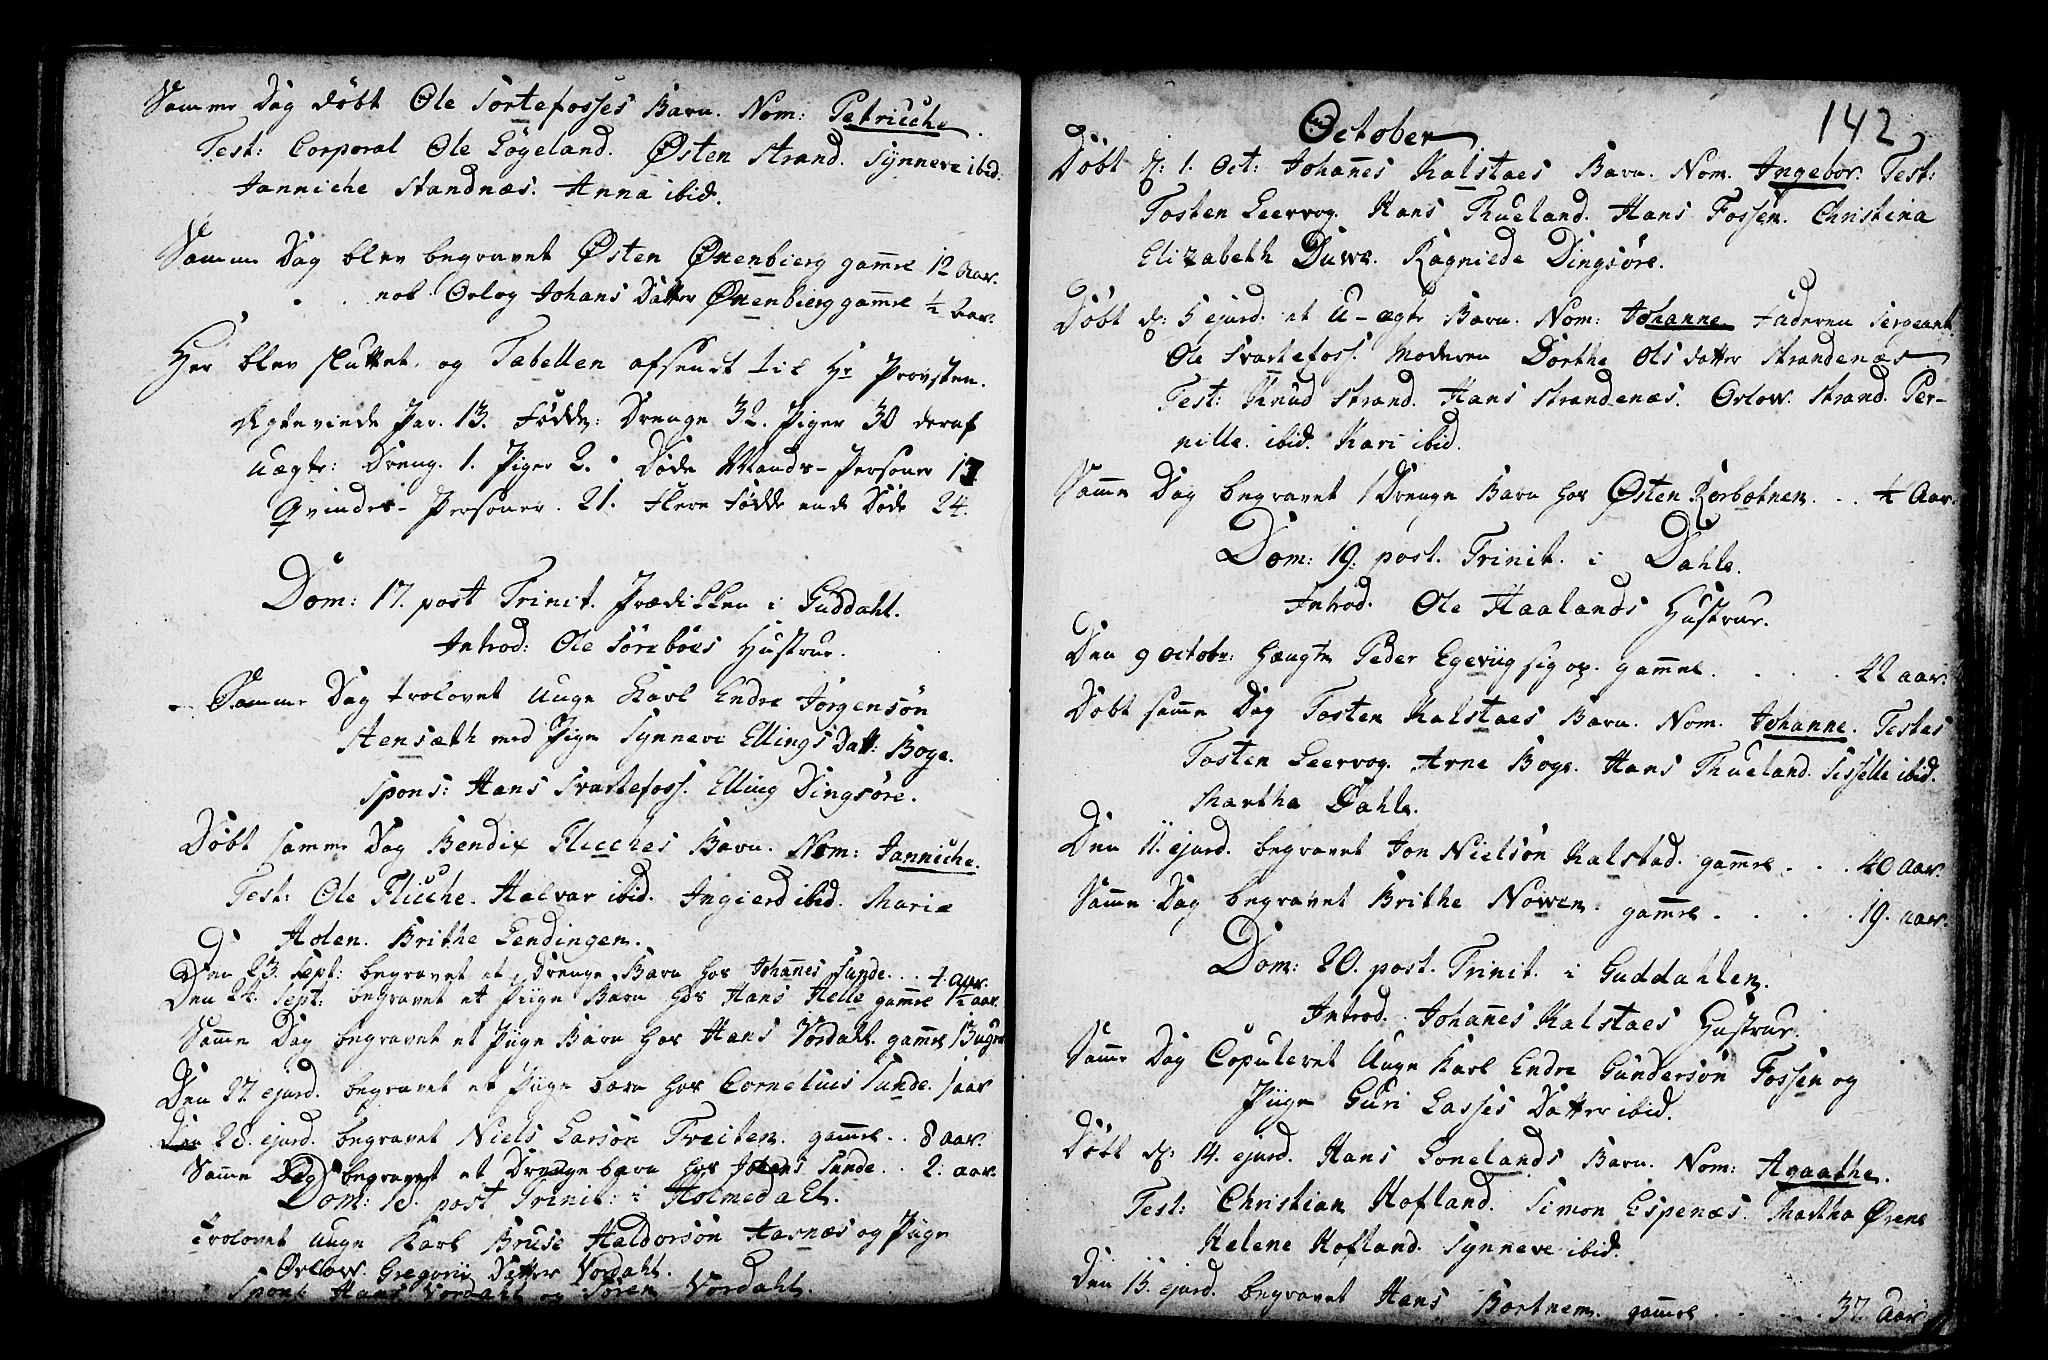 Samme Dag døbt Ole Sortefosses Barn. Nom: Petricche.
Test: Corporal Ole Løgeland. Østen Strand. Synneve ibid.
Janniche Standnæs. Anna ibid.
Samme Dag blev begravet Østen Øxenbierg gaml 12 Aar.
nok Orlog Johans Datter Øxenbierg gaml ½ Aar.
Her blev sluttet, og Tabellen afsendt til Hr Provsten.
Ægteviede Par. 13. Fødde: Drenge 32. Piger 30 deraf
uægte: Dreng. 1. Piger 2. Døde Mands-Personer 17
Qvindes-Personer. 21. Flere Fødde ende Døde 24.
Dom: 17. post Trinit. Prædikken i Guddahl.
Introd: Ole Sørebøes Hustrue.
Samme Dag trolovet Unge Karl Endre Jørgensøn
Stensæth med Pige Synneve Ellings Datt: Boge.
Spons: Hans Svartefoss. Elling Dingsøre.
Døbt samme Dag Bendix Flicches Barn. Nom: Janniche.
Test: Ole Flicche. Halvar ibid. Ingierd ibid. Marie
Holen. Brithe Lendingen.
Den 23. Sept: begravet et Drenge Barn hos Johannes Sunde. . . Aar.
Den 24. Sept: begravet et Piige Barn hos Hans Helle gaml 1½ aar.
Samme Dag begravet et Piige Barn hos Hans Vordahl. gaml 13 uger
Den 27. ejusd. begravet et Piige barn hos Cornelius Sunde. 1 aar
Den 28. ejusd. begravet Niels Larsøn Treiten. gaml . . 8 aar.
Samme Dag begravet et Drenge barn hos Johans Sunde . . 2. aar.
Dom: 18. post Trinit: i Holmedahl.
Trolovet unge Karl Bruse Haldorsøn Aasnæs og Piige
Orlow Gregorii Datter Vordahl.
Spons: Hans Vordahl og Søren Vordahl.
142
October
Døbt d: 1. Oct: Johannes Kalstaes Barn. Nom. Ingebor. Test:
Tosten Leervog. Hans Thueland. Hans Fossen. Christina
Elizabeth Duwe. Ragniede Dingsøre.
Døbt d: 5 ejusd. et U-ægte Barn. Nom: Johanne. Faderen Sergeant
Ole Svartefoss. Moderen Dorthe Ols datter Strandenæs
Test: Knud Strand. Hans Strandenæs. Orlow. Strand. Per-
nille. ibid. Kari ibid.
Samme Dag begravet 1 Drenge Barn hos Østen Rørbotnen. . . ¼ Aar.
Dom: 19. post. Trinit. i Dahle.
Introd. Ole Haalands Hustrue.
Den 9 octobr: hængte Peder Egeviig sig op. gammel . . . . 42 aar.
Døbt samme Dag Tosten Kalstaes Barn. Nom. Johanne. Testes
Tosten Leervog. Arne Boge. Hans Thueland. Sisselle ibid.
Martha Dahle.
Den 11. ejusd. begravet Jon Nielsøn Kalstad. gammel . . . 40 aar.
Samme Dag begravet Brithe Nowen. gammel . . . . 19. aar.
Dom: 20. post. Trinit. i Guddahlen.
Introd. Johannes Kalstaes Hustrue.
Samme Dag Copulevet Unge Karl Endre Gundersøn Fossen og
Piige Guri Lasses Datter ibid.
Døbt d: 14. ejusd. Hans Lonelands Barn. Nom: Agaathe.
Test: Christian Hofland. Simon Espenæs. Martha Ørene
Helene Hofland. Synneve ibid.
Den 15. ejusd. begravet Hans Bortnem. gammel . . . . . 37. Aar